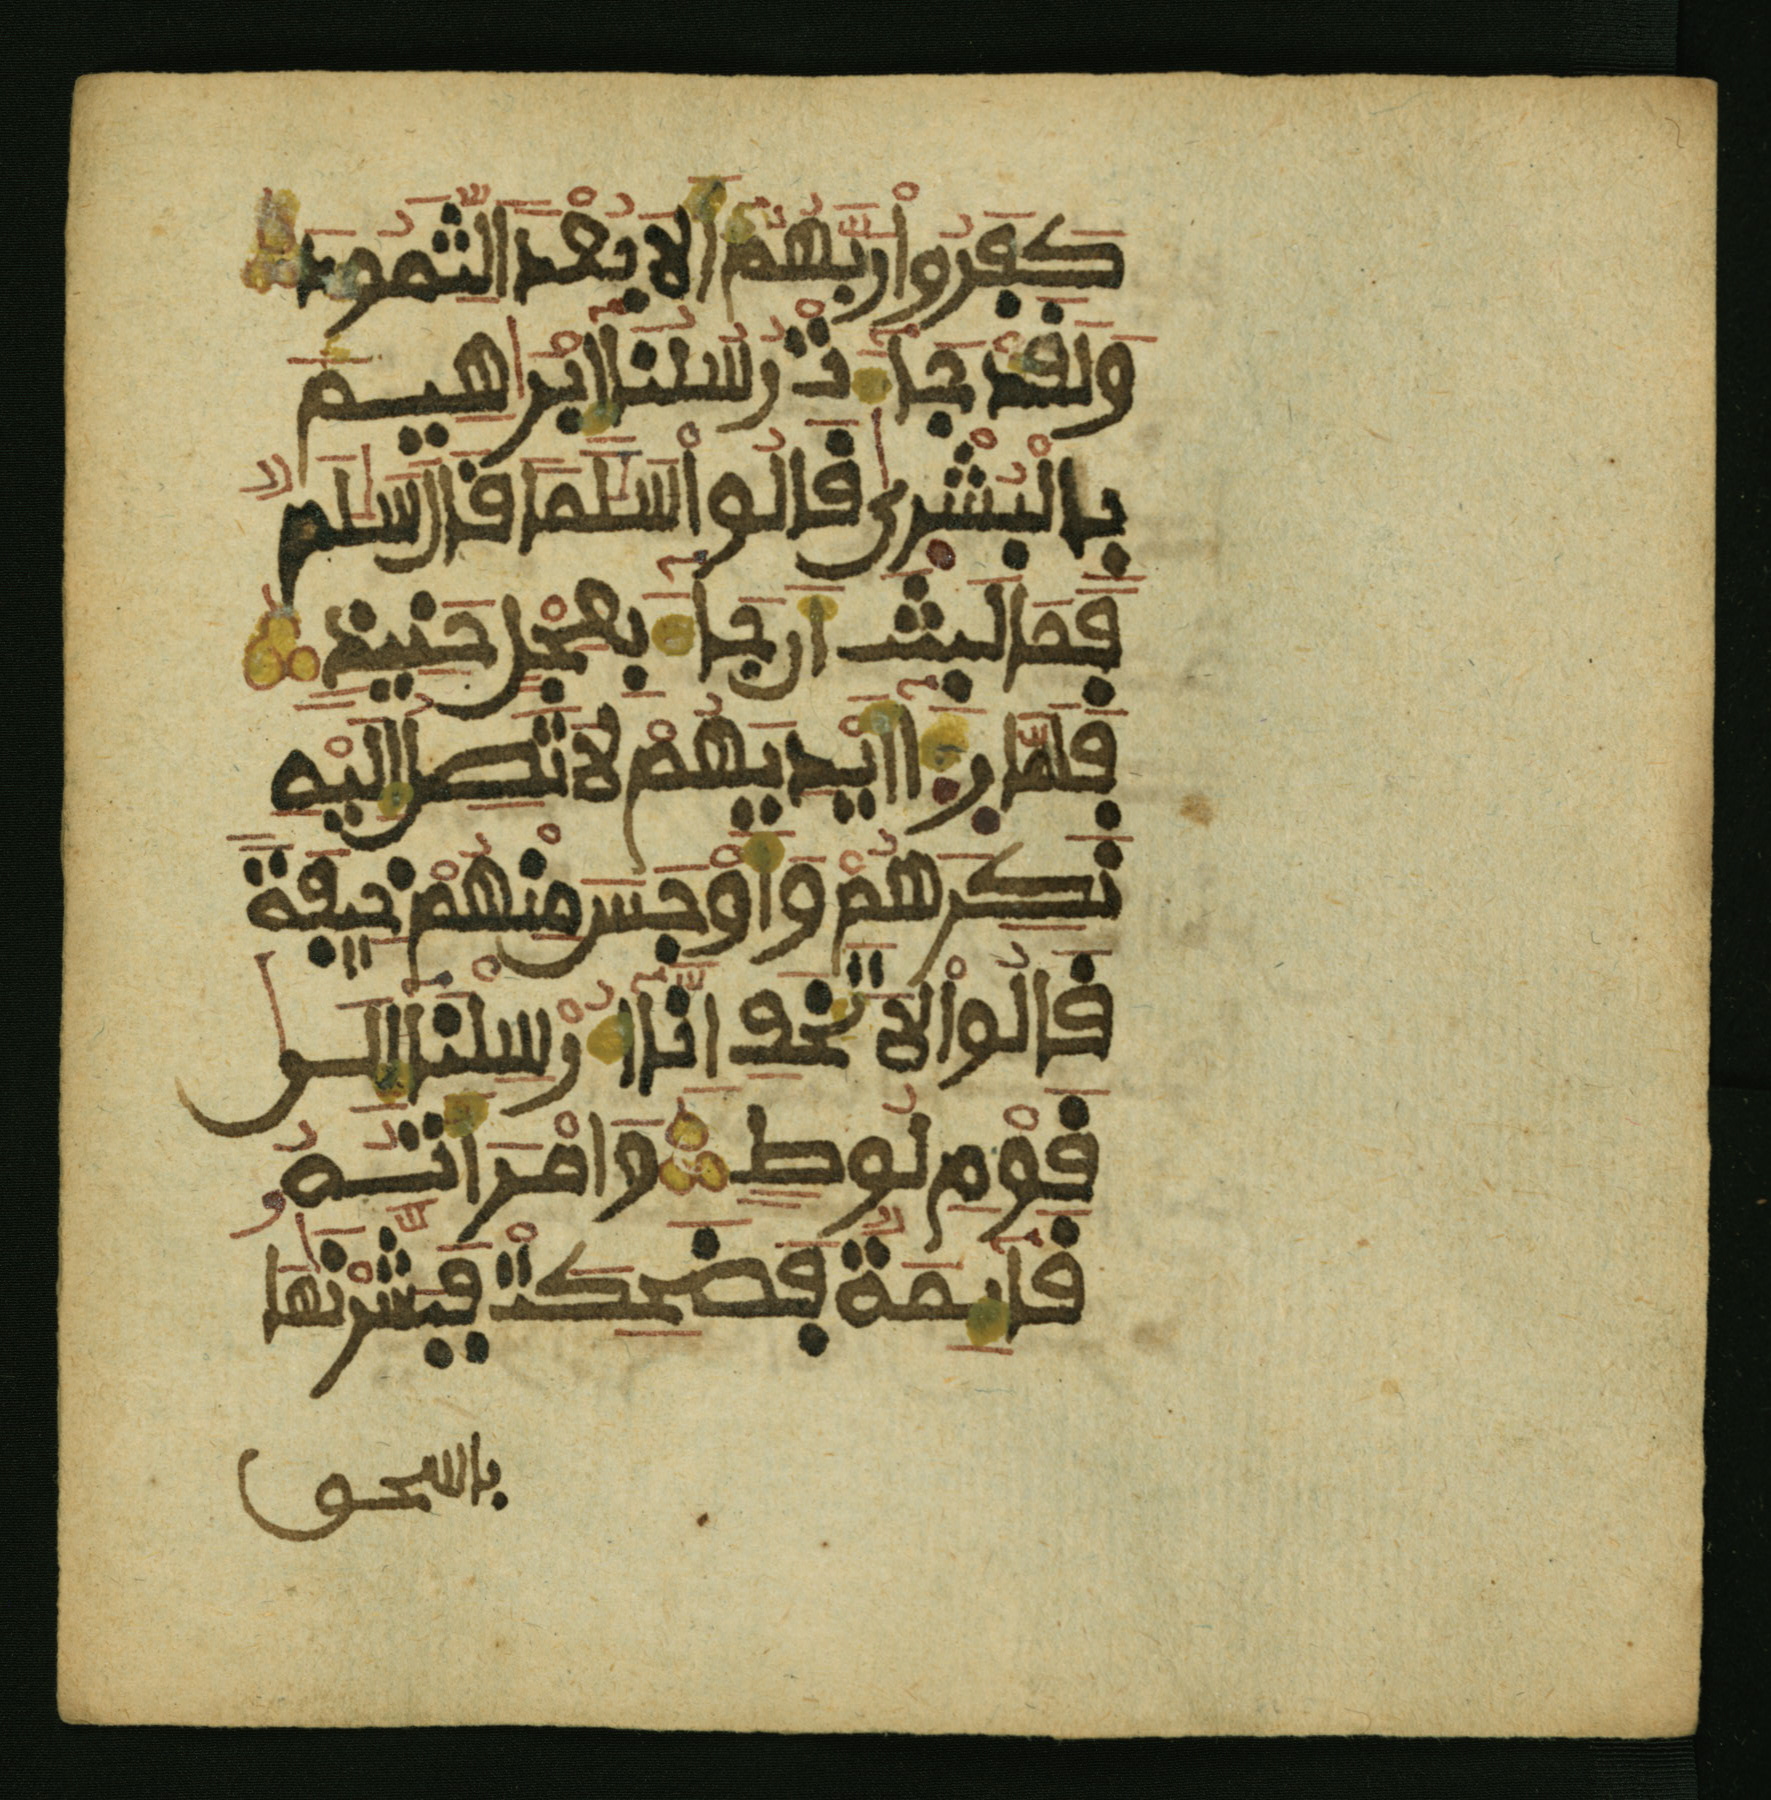 كفروا ربهم الا بعدا لثمود
ولقد جاءت رسلنا ابرٰهيم
بالبشرىٰ قالوا سلٰما قال سلٰم
فما لبث ان جاء بعجل حنيذ
فلما رءا ايديهم لا تصل اليه
نكرهم واوجس منهم خيفة
قالوا لا تخف انا ارسلنا الىٰ
قوم لوط وامراته
قايمة فضحكت فبشرنٰها
باسحق